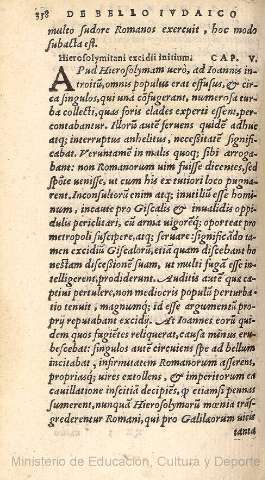 338 DE BELLO IVDAICO
multo sudore Romanos exercuit, hoc modo
subacta est.
Hierosolymitani excidii initium. CAP. V.
APud Hierosolymam uerò, ad Ioannis in-
troitũ, omnis populus erat effusus, & cir-
ca singulos, qui una cõfugerant, numerosa tur-
ba collecti, quas foris clades experti essent, per-
contabantur. Illorũ autẽ feruens quidẽ adhuc
atq; interruptus anhelitus, necessitatẽ signifi-
cabat. Veruntamẽ in malis quoq; sibi arroga-
bant: non Romanorum uim fuisse dicentes, sed
spõte uenisse, ut cum his ex tutiori loco pugna-
rent. Inconsultorũ enim atq; inutiliũ esse homi-
num, incaute pro Giscalis & inualidis oppi-
dulis periclitari, cũ arma uigorẽq; oporteat pro
metropoli suscipere, atq; seruare: significãdo ta-
men excidiũ Giscalorũ, etiã quam discebant ho
nestam discessionẽ suam, ut multi fugã esse in-
telligerent, prodiderunt. Auditis autẽ quæ ca-
ptiui pertulere, non mediocris populũ perturba-
tio tenuit, magnumq; id esse argumentũ pro-
prij reputabant excidij. At Ioannes eorũ qui-
dem quos fugiẽtes reliquerat, causa minus eru-
bescebat: singulos autẽ circuiens spe ad bellum
incitabat, infirmitatem Romanorum asserens,
propriasq; uires extollens, & imperitorum
cauillatione inscitiã decipiẽs, ꝙ etiamsi pennas
sumerent, nunquã Hierosolymorũ mœnia trãs-
grederentur Romani, qui pro Galilæorum uicis
tanta
Ministerio de Educación, Cultura y Deporte